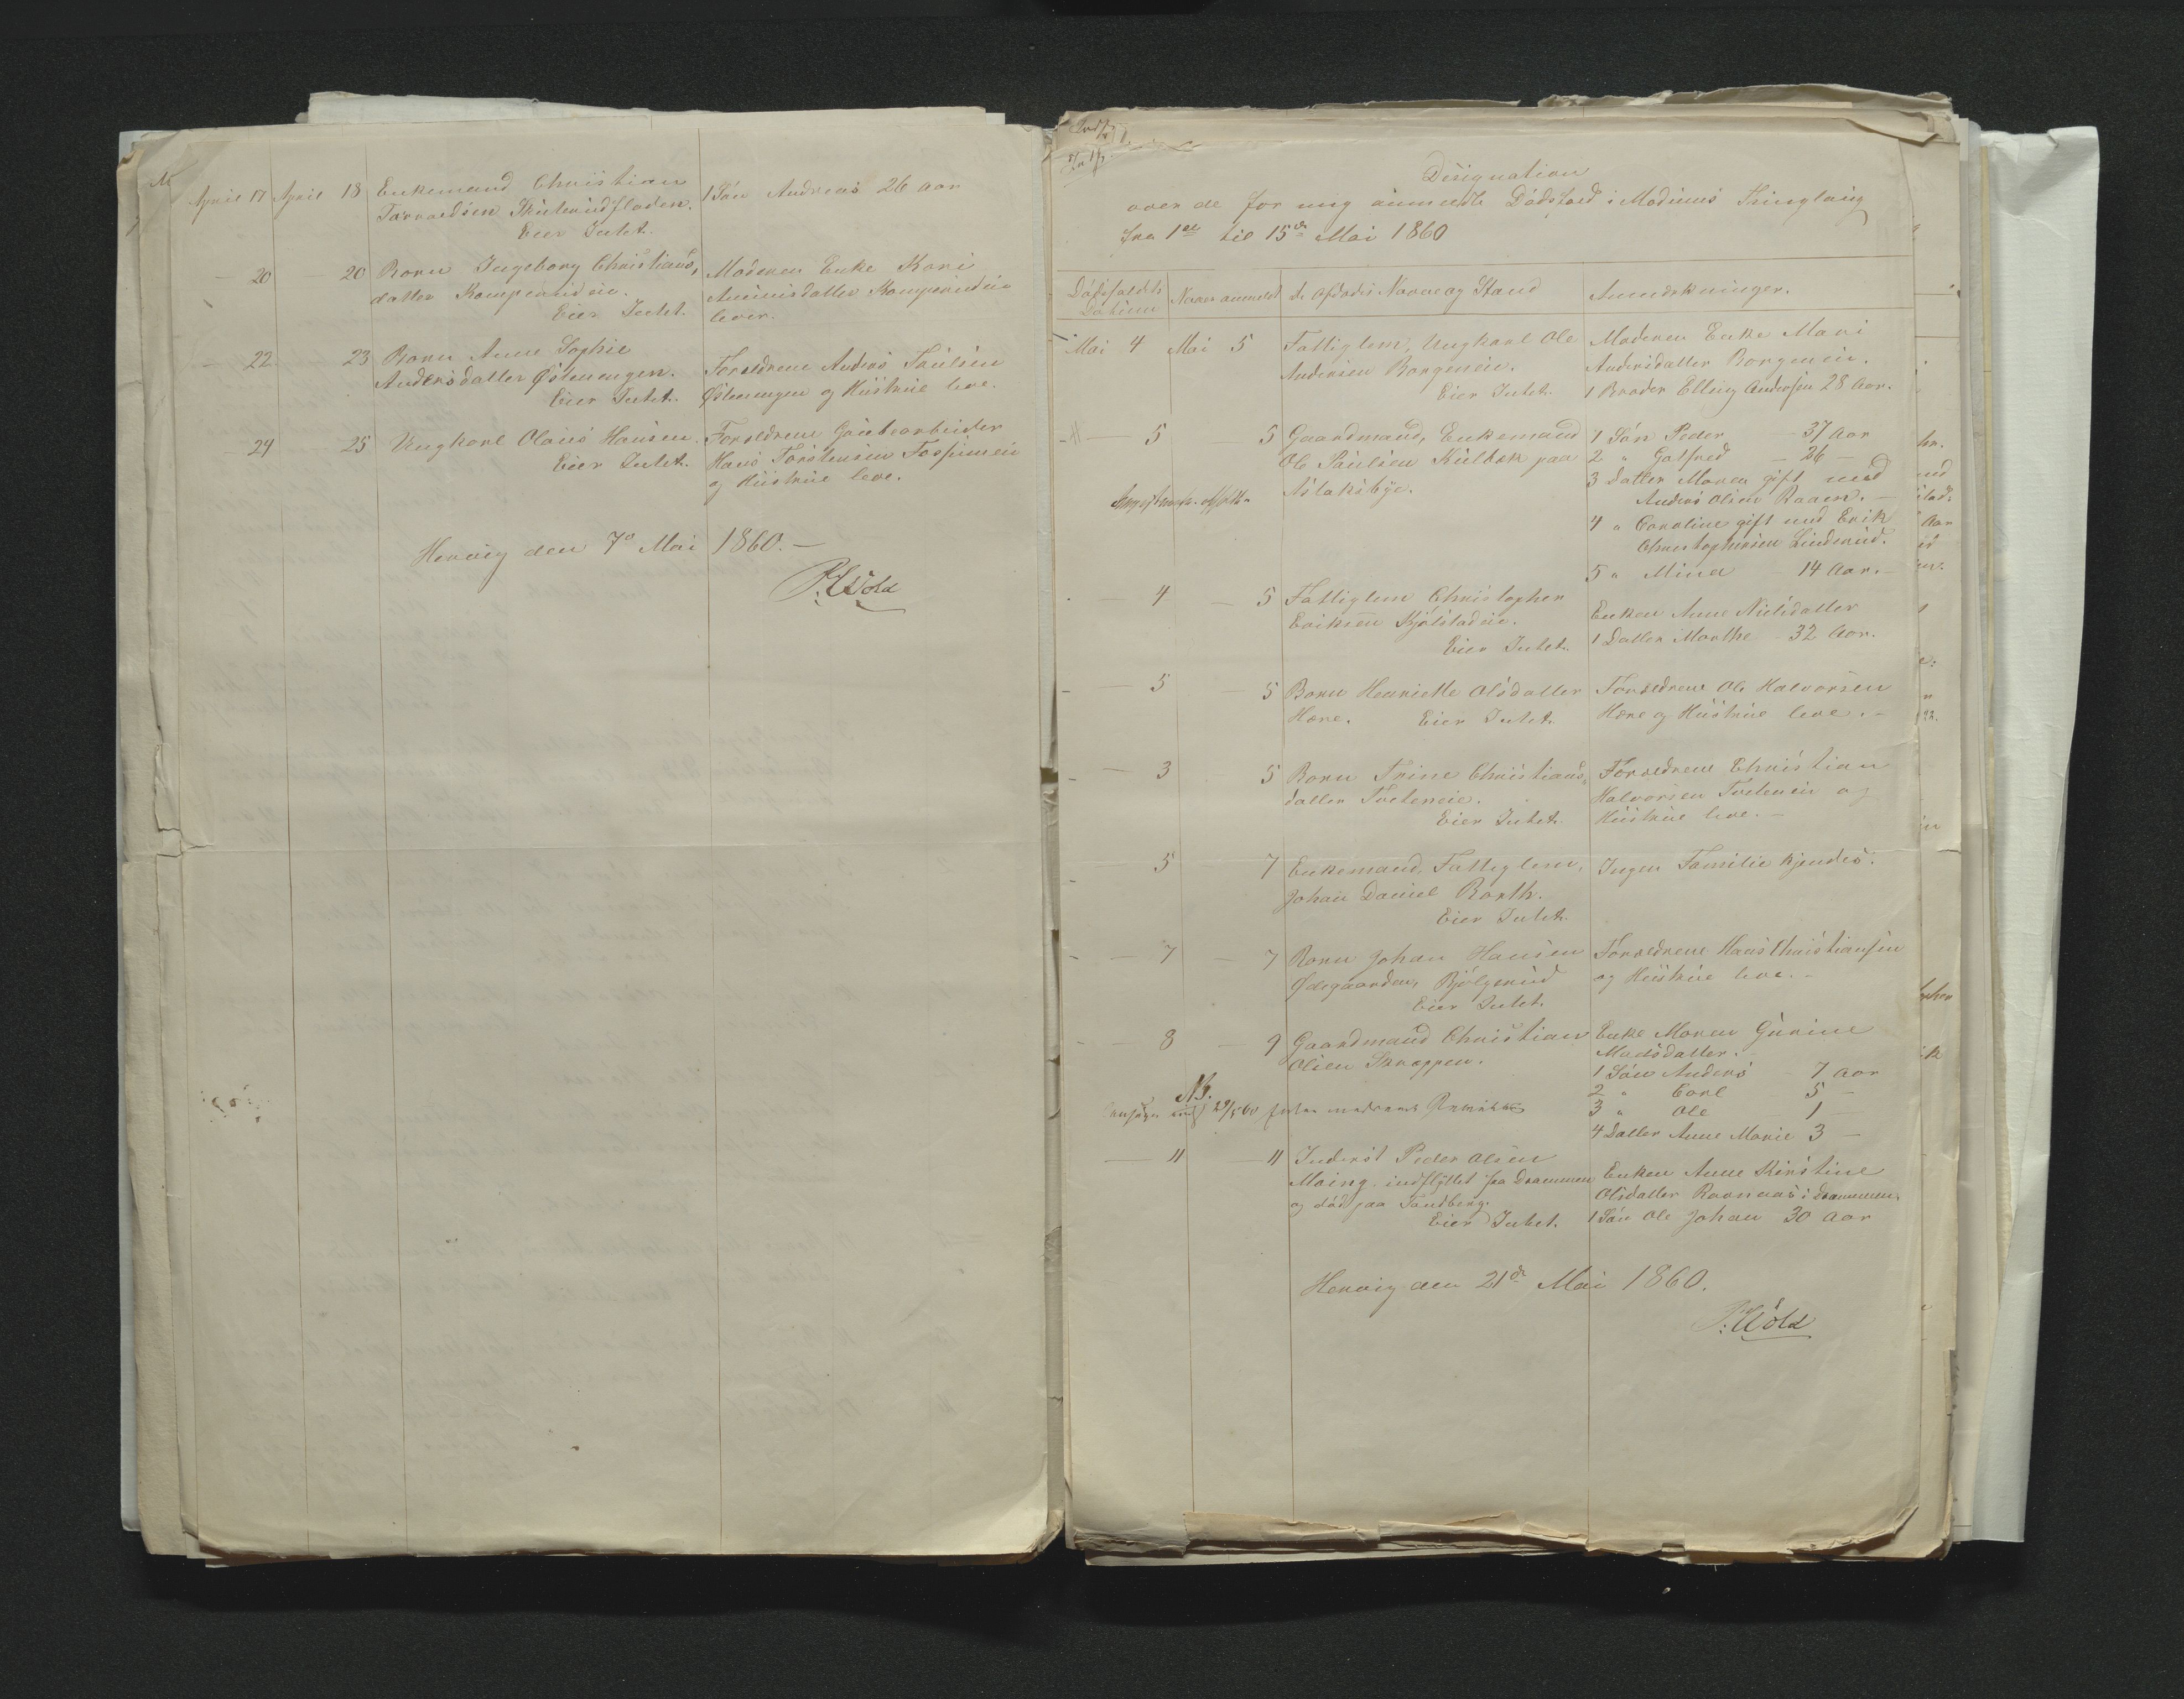 April 17 April 18 Enkemand Christian 1 Sön Andreas 26 Aar
Tarraldsen Skuterudfladen.
Eier Intet.
— 20 — 20 Barn Ingeborg Christians, Moderen Enke Kari
datter Komperudeie. Amundsdatter Komperudeie
Eier Intet. lever.
— 22 — 23 Barn Anne Sophie Forældrene Anders Paulsen
Andersdatter Østenengen. Østenengen og Hustrue leve.
Eier Intet.
— 24 — 25 Ungkarl Olaus Hansen. Forældrene Grubearbeider
Eier Intet. Hans Torstensen Fossumeie
og Hustrue leve.
Hervig den 7de Mai 1860.—
P: Wold
Designation
over de for mig anmeldte Dödsfald i Modums Thinglaug
fra 1ste til 15de Mai 1860
Dödsfaldets Datum Naar anmeldt de Afdødes Navne og Stand Anmærkninger.
Mai 4 Mai 5 Fattiglem, Ungkarl Ole Moderen Enke Mari
Andersen Borgeneie. Andersdatter Borgeneie.
Eier Intet. 1 Broder Elling Andersen 28 Aar.
— 5 — 5 Gaardmand, Enkemand 1 Sön Peder — 37 Aar
Ole Paulsen Kulbæk paa 2 " Gulfred — 26 —
Aslaksbye. 3 Datter Maren gift med
Anders Olsen Raaen. —
4 " Caroline gift med Erik
Christophersen Linderud.
5 " Mina — 14 Aar. —
— 4 — 5 Fattiglem Christopher Enken Anne Nielsdatter
Eriksen Kjølstadeie. 1 Datter Marthe — 32 Aar.
Eier Intet.
— 5 — 5 Barn Henriette Olsdatter Forældrene Ole Halvorsen
Hære. Eier Intet. Hære og Hustrue leve. —
— 3 5 Barn Trine Christians, Forældrene Christian
datter Tveteneie. Halvorsen Tveteneie og
Eier Intet. Hustrue leve. —
— 5 7 Enkemand, Fattiglem, Ingen Familie kjendes.
Johan Daniel Barth.
Eier Intet.
— 7 — 7 Barn Johan Hansen Forældrene Hans Christiansen
Ødegaarden, Bjölgerud og Hustrue leve. —
Eier Intet.
— 8 — 9 Gaardmand Christian Enke Maren Gurine
Olsen Skrappen. Madsdatter. —
1 Sön Anders — 7 Aar
NB. 2 " Carl 5 —
29/5 60 3 " Ole 1
4 Datter Anne Marie 3 —
— 11 — 11 Inderst Peder Olsen Enken Anne Kirstine
indflyttet fra Drammen Olsdatter i Drammen.
og död paa Tandberg. 1 Sön Ole Johan 30 Aar
Eier Intet.
Hervig den 21de Mai 1860.
P: Wold